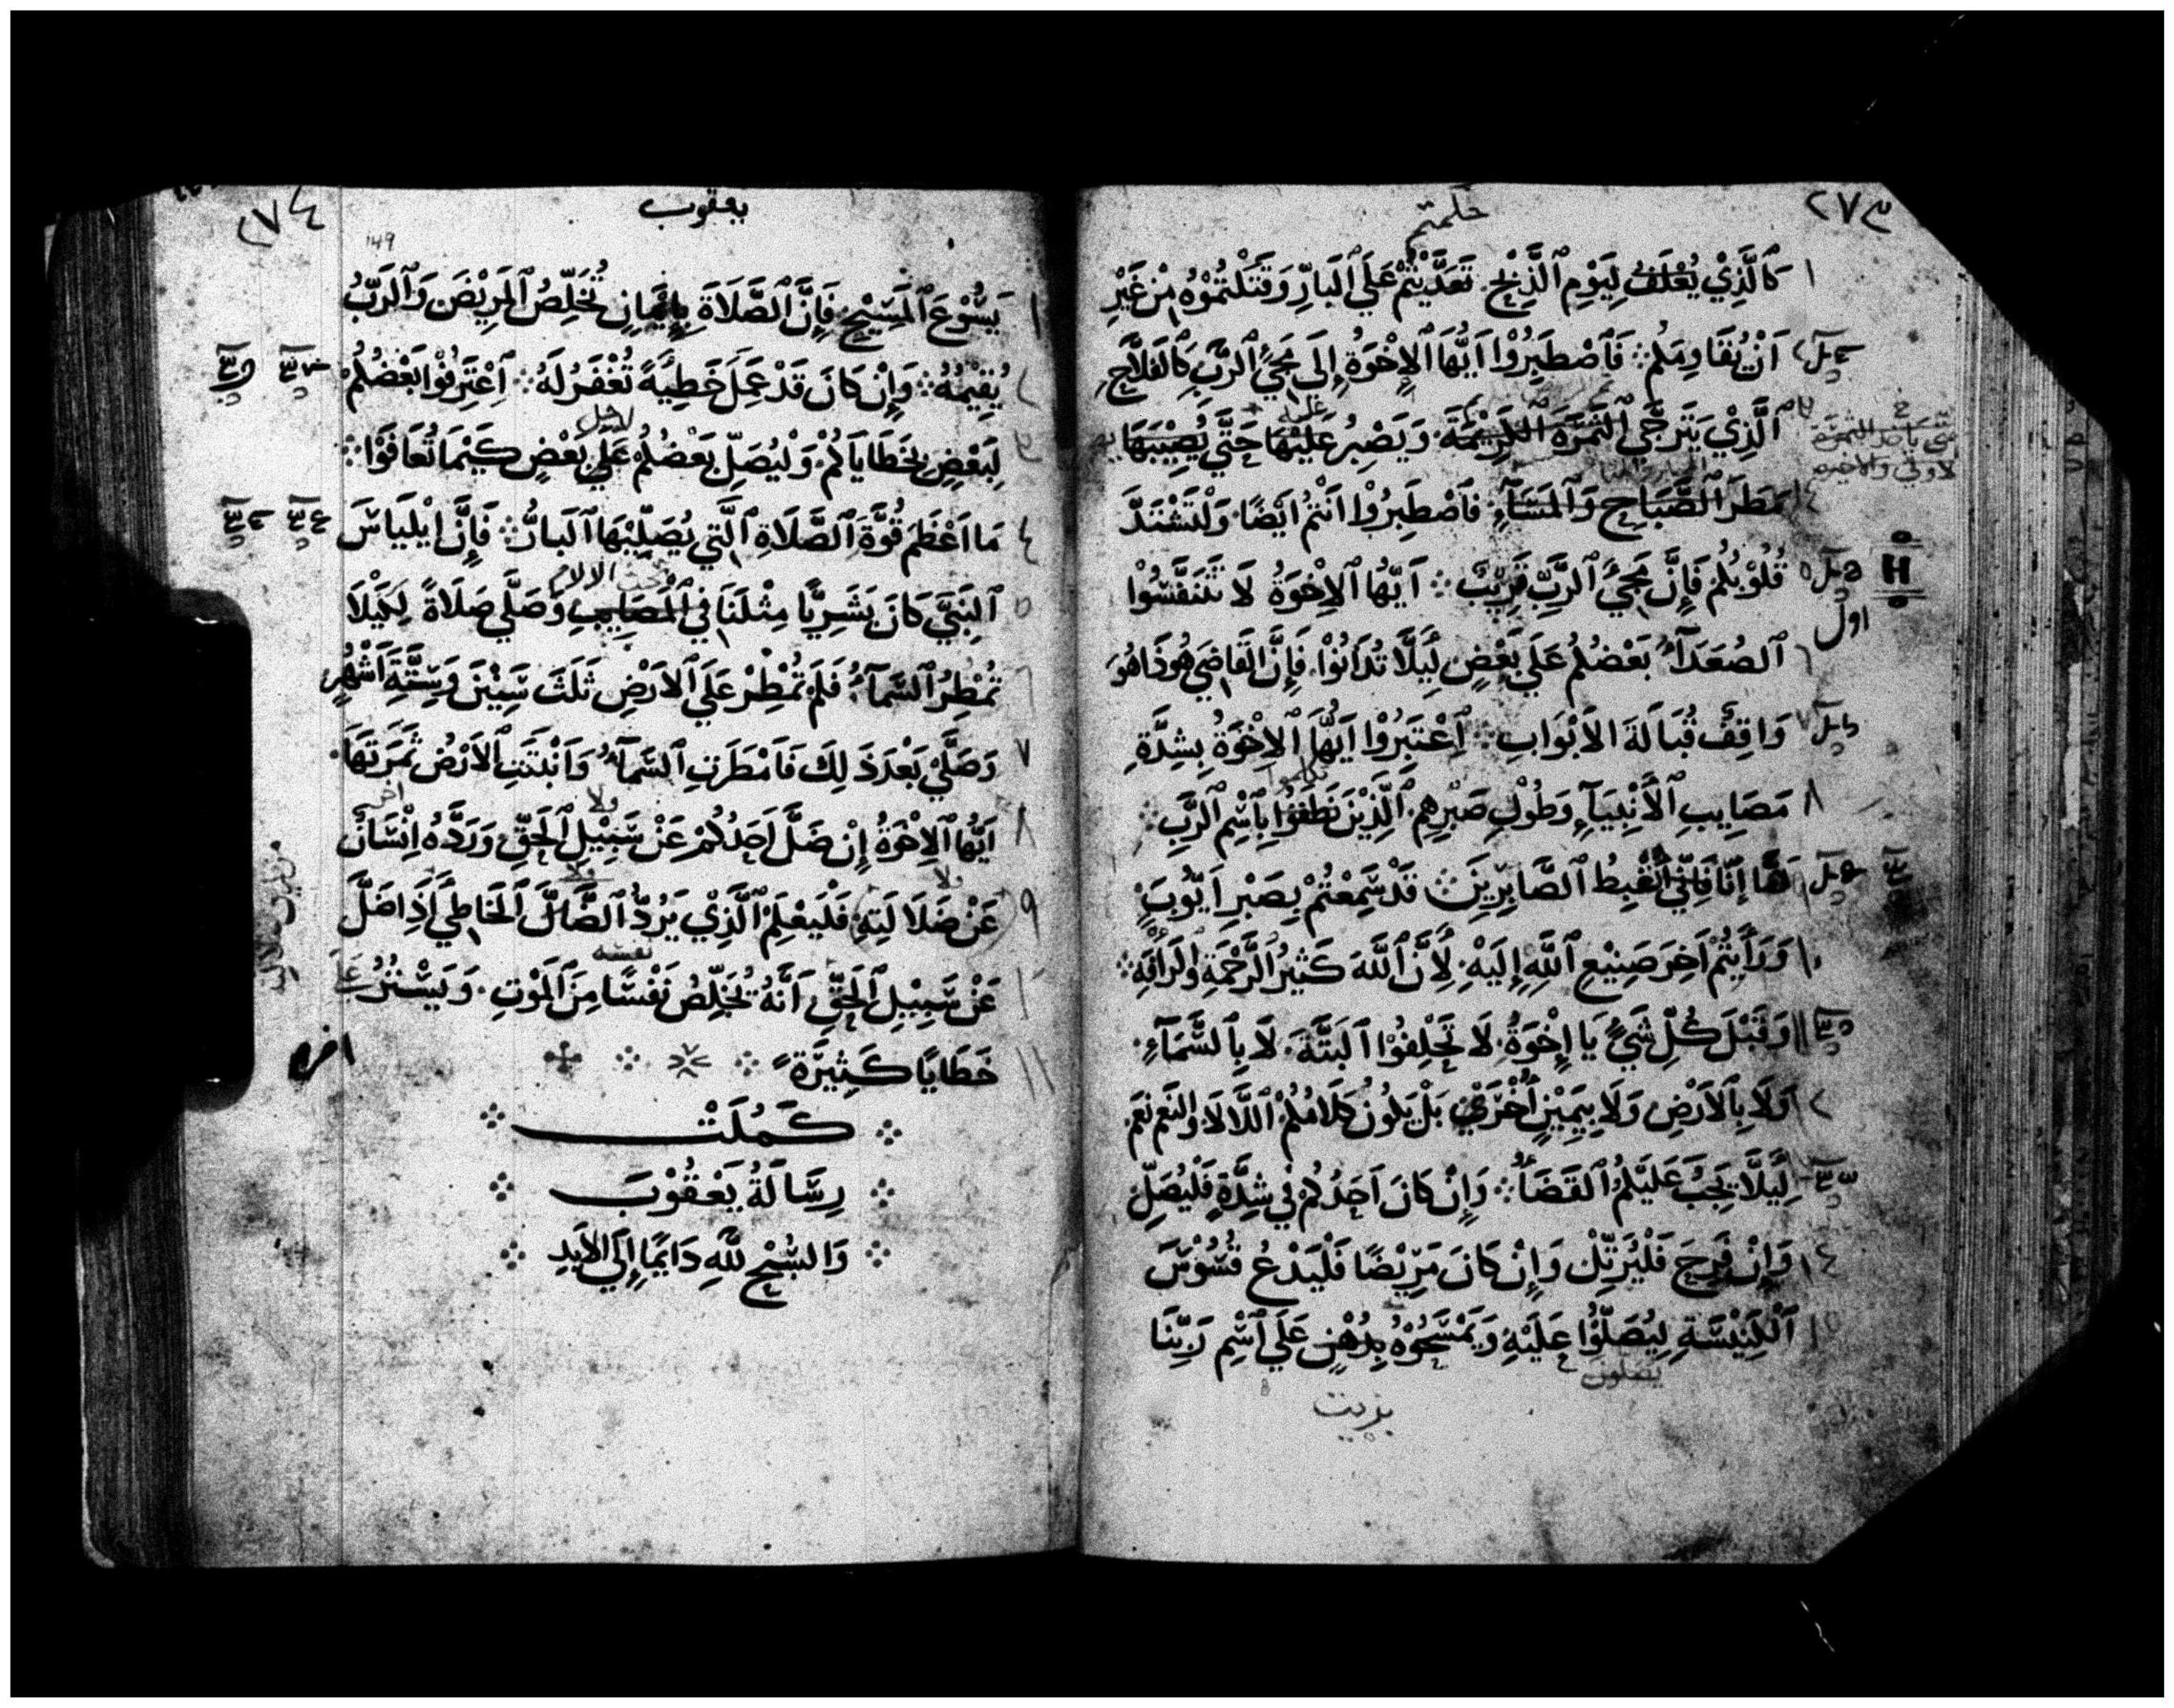 ٢٧٣
١ كَالَّذِيْ يُعْلَفُ لِيَوْمِ ٱلذَّبْحِ. تَعَدَّيْتُمْ عَلَي ٱلبَارِّ وَقَتَلْتُمُوْهُ مِنْ غَيْرِ
٢ اَنْ يُقَاوِمَكُمْ ܀ فَٱصْطَبِرُوْا اَيُّهَا ٱلاِخْوَةُ إِلَى مَجِيْ ٱلرَّبِّ كَالفَلَّاحِ
٣ ٱلَّذِيْ يَتَرَجَّى ٱلثَّمَرَةَ ٱلكَرِيْمَةَ وَيَصْبِرُ عَلَيْهَا حَتَّي يُصِيْبَهَا
٤ مَطَرَ ٱلصَّبَاحِ وَٱلمَسَآءِ. فَٱصْطَبِرُوْا اَنْتُمْ اَيْضًا. وَلْتَشْتَدَّ
٥ قُلُوْبُكُمْ فَإِنَّ مَجِيَ ٱلرَّبِّ قَرِيْبٌ ܀ اَيُّهَا ٱلاِخْوَةُ لَا تَتَنَفَّسُوْا
اول
٦ ٱلصُعَدَآءَ بَعْضُكُمْ عَلَي بَعْضٍ لِيَلَّا تُدَانُوْا. فَإِنَّ القَاضِيَ هُوَذَا هُوَ
٧ وَاقِفٌ قُبَالَةَ الاَبْوَابِ ܀ اِعْتَبِرُوْا اَيُّهَا ٱلاِخْوَةُ بِشِدَّةِ
٨ مَصَايِبِ ٱلاَنْبِيَآءِ وَطُوْلِ صَبْرِهِمِ ٱلَّذِيْنَ نَطَقُوْا بِاسْمِ ٱلرَّبِّ ܀
هَا إِنَّا نُغْبِطُ ٱلصَّابِرِيْنَ ܀ قَدْ سَمِعْتُمْ بِصَبْرِ اَيُّوْبَ
١٠ وَرَأَيْتُمْ اَخِرَ صَنِيْعِ ٱللَّهِ إِلَيْهِ. لِأَنَّ ٱللَّهَ كَثِيْرُ ٱلرَّحْمَةِ وَٱلرَأفَةِ ܀
١١ وَقَبْلَ كُلِّ شَيْءٍ يَا إِخْوَةُ. لَا تَحْلِفُوْا اَلبَتَّةَ. لَا بِٱلسَّمَآءِ.
وَلَا بِٱلاَرْضِ وَلَا بِيَمِيْنٍ اُخْرَيْ بَلْ يَكُوْنُ كَلَامُكُمْ اللَّا لَا وَالنَعَم نَعَم
لِيَلَّا يَجِبَ عَلَيْكُمُ ٱلقَضَآءُ ܀ وَإِنْ كَانَ اَحَدُكُمْ فِي شِدَّةٍ فَلْيُصَلِّ
١٤ وَإِنْ فَرِحَ فَلْيُرَتِّلْ وَإِنْ كَانَ مَرِيْضًا فَلْيَدْعُ قُسُوْسَ
١٥ ٱلكَنِيْسَةِ لِيُصَلُّوْا عَلَيْهِ وَيَمْسَحُوْهُ بِدُهْنٍ عَلَي ٱسْمِ رَبِّنَا
يصلون
بزيت
يعقوب
٢٧٤
149
١ يَسُوْعَ ٱلمَسِيْحِ فَإِنَّ ٱلصَّلَاةَ بِإِيْمَانٍ تُخَلِّصُ ٱلمَرِيْضَ وَٱلرَبُّ
٢ يُقِيْمُهُ ܀ وَإِنْ كَانَ قَدْ عَمِلَ خَطِيَّةً تُغْفَرُ لَهُ ܀ اِعْتَرِفُوْا بَعْضُكُمْ
٣ لِبَعْضٍ بِخَطَايَاكُمْ. وَلْيُصَلِّ بَعْضُكُمْ عَلَي بَعْضٍ كَيْمَا تُعَافَوْا ܀
٤ مَا اَعْظَمَ قُوَّةَ ٱلصَّلَاةِ ٱلَّتِي يُصَلِّيْهَا ٱلبَارُّ ܀ فَإِنَّ اِيْلِيَاسَ
الالام
٥ ٱلنَبِيَّ كَانَ بَشَرِيًّا مِثْلَنَا فِي ٱلْمَصَايِبِ وَصَلَّي صَلَاةً لِكَيْلَا
٦ تُمْطِرُ ٱلسَّمَآءُ. فَلَمْ تُمْطِرْ عَلَي ٱلاَرْضِ ثَلَثَ سِنِيْنَ وَسِتَّةَ اَشْهُرٍ
٧ وَصَلَّيْ بَعْدَ ذَلِكَ فَاَمْطَرَتِ ٱلسَّمَآءُ وَاَنْبَتَتِ ٱلاَرْضُ ثَمَرَتَهَا.
٨ اَيُّهَا ٱلاِخْوَةُ إِنْ ضَلَّ اَحَدُكُمْ عَنْ سَبِيْلِ ٱلحَقِّ وَرَدَّهُ اِنْسَانٌ
٩ عَنْ ضَلَالَتِهِ. فَلْيَعْلَمْ ٱلَّذِيْ يَرُدُّ ٱلضَّالَّ ٱلخَاطِيَ اِذَا ضَلَّ
نفسه
١٠ عَنْ سَبِيْلِ ٱلحَقِّ اَنَّهُ يُخَلِّصُ نَفْسًا مِنَ ٱلمَوْتِ. وَيَسْتُرُ عَلَي
١١ خَطَايَا كَثِيْرَةً
اخره
كَمُلَتْ
رِسَالَةُ يَعْقُوْبَ
وَالسُبْحُ لِلَّهِ دَايِمًا إِلَي الاَبَدِ